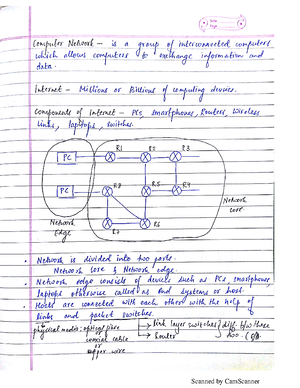 Date
Page
Computer Network - is a group of interconnected computers
which allows computers to exchange information and
data.
Internet - Millions or Billions of computing devices.
Components of Internet - PCs, smartphones, Routers, Wireless
links, laptops, switches.
R1 R2 R3
PC
PC R8 R5 R4
Network
Edge
R7 R6
Network
core
• Network is divided into two parts
Network Core & Network edge.
• Network edge consists of devices such as PCs, smartphones,
laptops otherwise called as end systems or host.
• Hosts are connected with each other with the help of
links and packet switches.
physical media: optical fibre
or
coaxial cable
or
copper wire
link layer switches
Router
diff. b/w these
two
Scanned by CamScanner